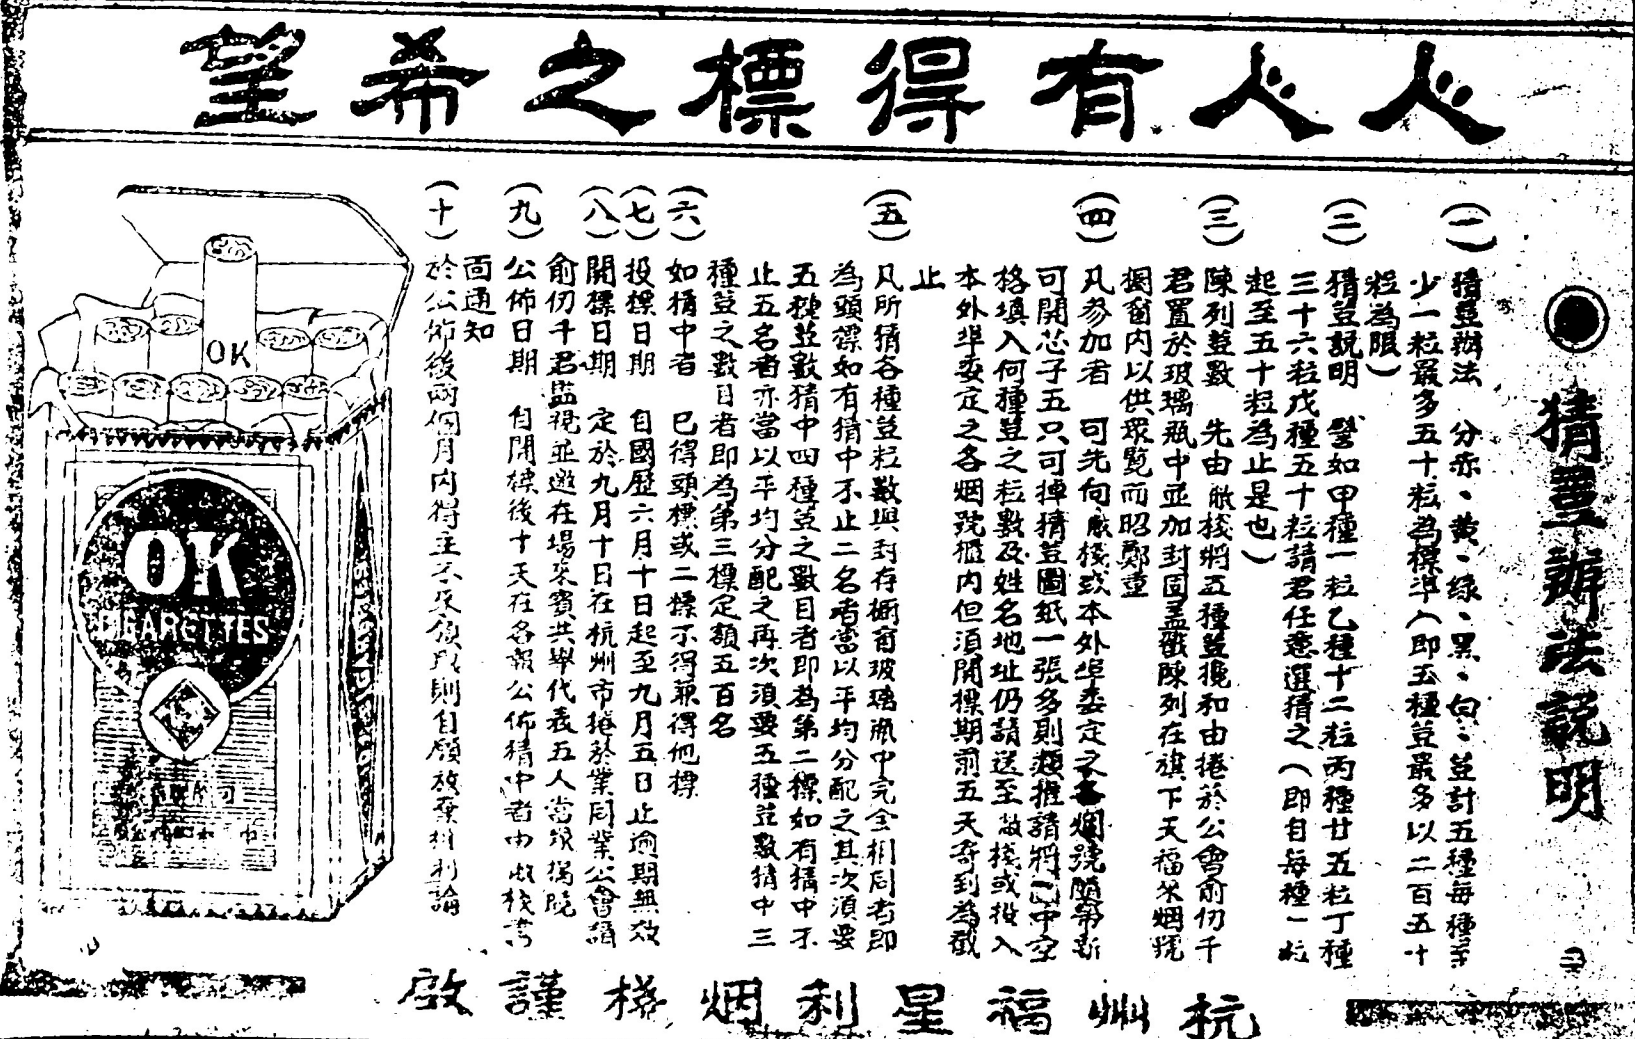 人人有得標之希望
猜荳辦法說明
(一)猜荳辦法　分赤、黃、綠、黑、白：荳計五種每種至
少一粒最多五十粒為標準(即五種荳最多以二百五十
粒為限)
(二)猜荳說明　譬如甲種一粒乙種十二粒丙種廿五粒丁種
三十六粒戊種五十粒請君任意選猜之(即自每種一粒
起至五十粒為止是也)
(三)陳列荳數　先由敝棧將五種荳攙和由捲菸公會俞仞千
君置於玻璃瓶中並加封固蓋戳陳列在旗下天福來烟號
櫥窗内以供眾覧而昭鄭重
(四)凡參加者　可先向敝棧或本外埠委定之各烟號購
可開芯子五只可掉猜荳圖紙一張多則類推請將中空
格填入何種荳之粒數及姓名地址仍請送至敝棧或投入
本外埠委定之各烟號櫃内但須開標期前五天寄到為截
止
(五)凡所猜各種荳粒數與封存櫥窗玻璃瓶中完全相同者即
為頭標如有猜中不止二名者當以平均分配之其次須要
五種荳數猜中四種荳之數目者即為第二標如有猜中不
止五名者亦當以平均分配之再次須要五種荳數猜中三
種荳之數目者即為第三標定額五百名
(六)如猜中者　已得頭標或二標不得兼得他標
(七)投標日期　自國歷六月十日起至九月五日止逾期無效
(八)開標日期　定於九月十日在杭州市捲菸業同業公會請
俞仞千君監視並邀在場來賓共舉代表五人當眾揭曉
(九)公佈日期　自開標後十天在各報公佈猜中者由敝棧書
面通知
(十)於公佈後兩個月内得主不來領取則自願放棄權利論
OK
OK
CIGARETTES
杭州福星利烟棧謹啟